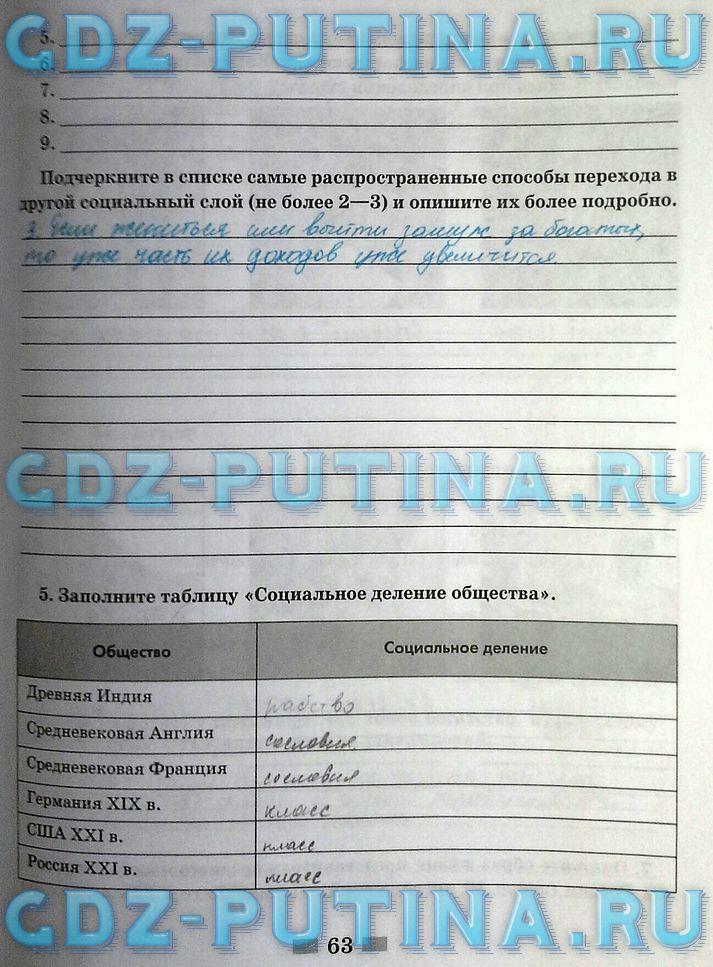 GDZ-PUTINA.RU
5.
6.
7.
8.
9.
Подчеркните в списке самые распространенные способы перехода в
другой социальный слой (не более 2—3) и опишите их более подробно.
3. Если жениться или выйти замуж за богатых,
то уже часть их доходов уже увеличится.
GDZ-PUTINA.RU
5. Заполните таблицу «Социальное деление общества».
Общество Социальное деление
Древняя Индия рабство
Средневековая Англия сословия
Средневековая Франция сословия
Германия XIX в. класс
США XXI в. класс
Россия XXI в. класс
GDZ-PUTINA.RU
63